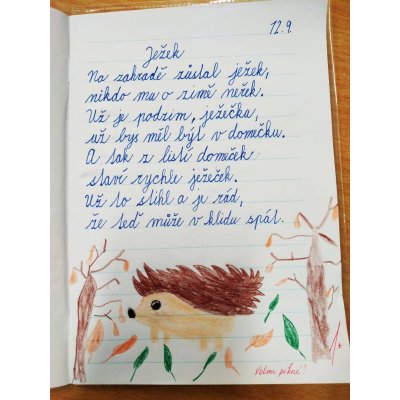 12.9.
Ježek
Na zahradě zůstal ježek,
nikdo mu o zimě neřek.
Už je podzim, ježečku,
už bys měl být v domečku.
A tak z listí domeček
staví rychle ježeček.
Už to stihl a je rád,
že teď může v klidu spát.
1*
Velmi pěkné!